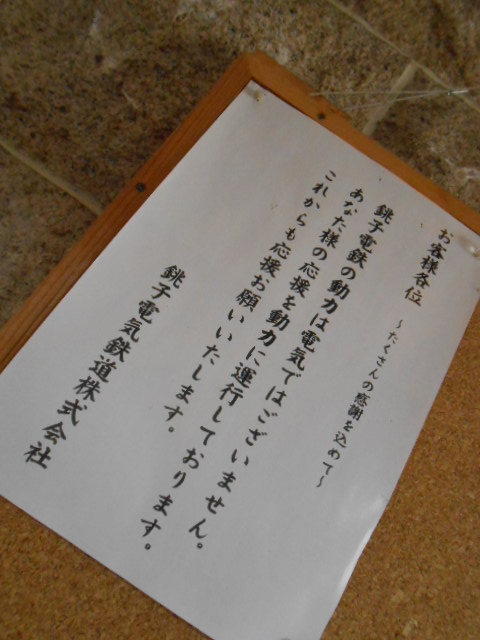 お客様各位　～たくさんの感謝を込めて～
銚子電鉄の動力は電気ではございません。
あなた様の応援を動力に運行しております。
これからも応援お願いいたします。
銚子電気鉄道株式会社